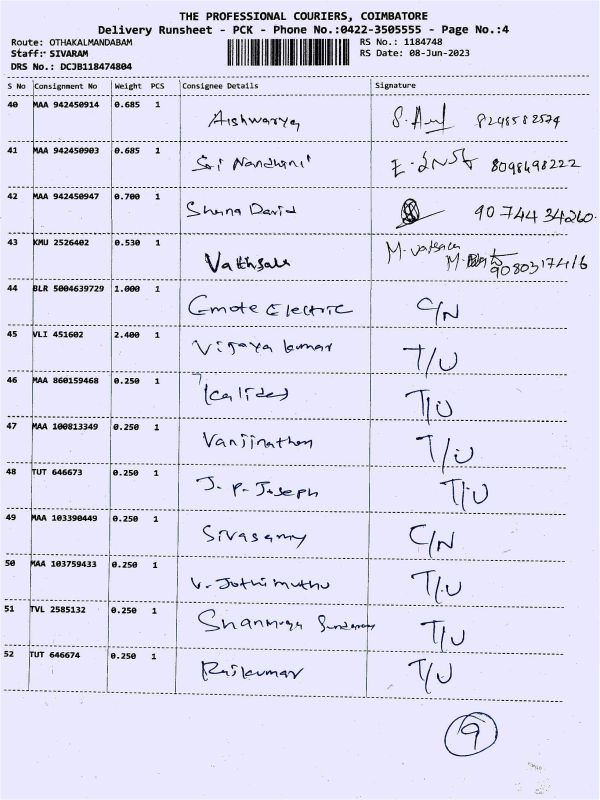 THE PROFESSIONAL COURIERS, COIMBATORE
Delivery Runsheet - PCK - Phone No.:0422-3505555 - Page No.:4
Route: OTHAKALMANDABAM RS No.: 1184748
Staff: SIVARAM RS Date: 08-Jun-2023
DRS No.: DCJB118474804
S No Consignment No Weight PCS Consignee Details Signature
40 MAA 942450914 0.685 1 Aishwarya 8248582574
41 MAA 942450903 0.685 1 Sri Nandhini 8098498222
42 MAA 942450947 0.700 1 Shuna David 90744 34260
43 KMU 2526402 0.530 1 Vathsala M. Vatsala
9080317416
44 BLR 5004639729 1.000 1 Emote Electric C/N
45 VLI 451602 2.400 1 Vijaya kumar T/U
46 MAA 860159468 0.250 1 Kalidas T/U
47 MAA 100813349 0.250 1 Vanjinathan T/U
48 TUT 646673 0.250 1 J. P. Joseph T/U
49 MAA 103390449 0.250 1 Sivasamy C/N
50 MAA 103759433 0.250 1 V. Jothimuthu T/U
51 TVL 2585132 0.250 1 Shanmuga Sundaram T/U
52 TUT 646674 0.250 1 Rajkumar T/U
9